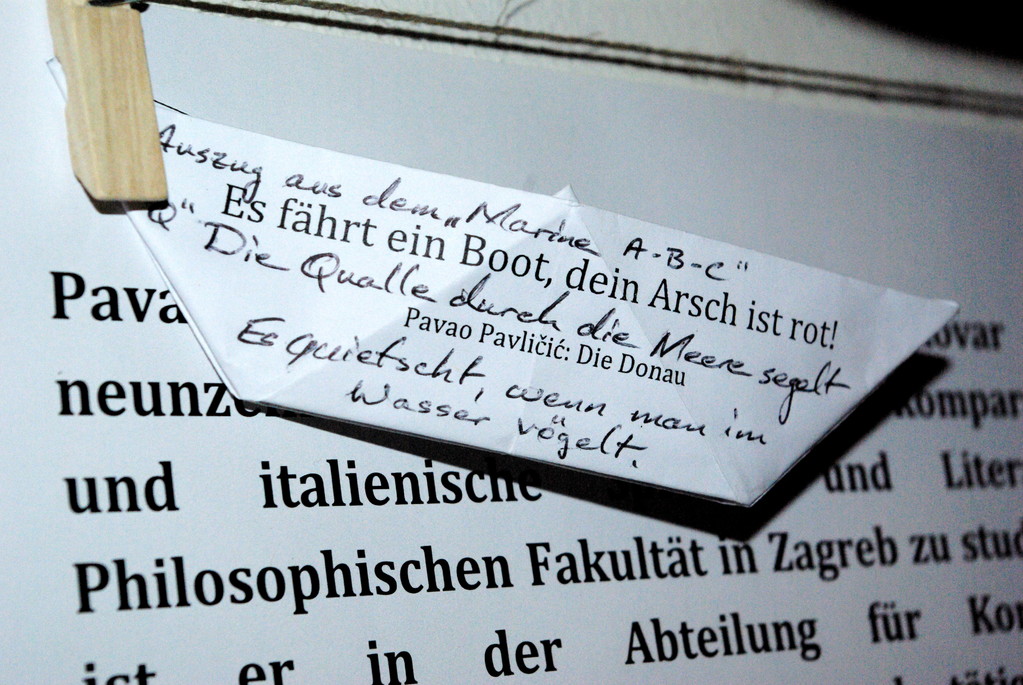 Auszug aus dem „Marine A-B-C“
Es fährt ein Boot, dein Arsch ist rot!
Q“ Die Qualle durch die Meere segelt
Pavao Pavličić: Die Donau
Es quietscht, wenn man im
Wasser vögelt.
Pava
neunz
und italienische und Liter
Philosophischen Fakultät in Zagreb zu stud
ist er in der Abteilung für Ko